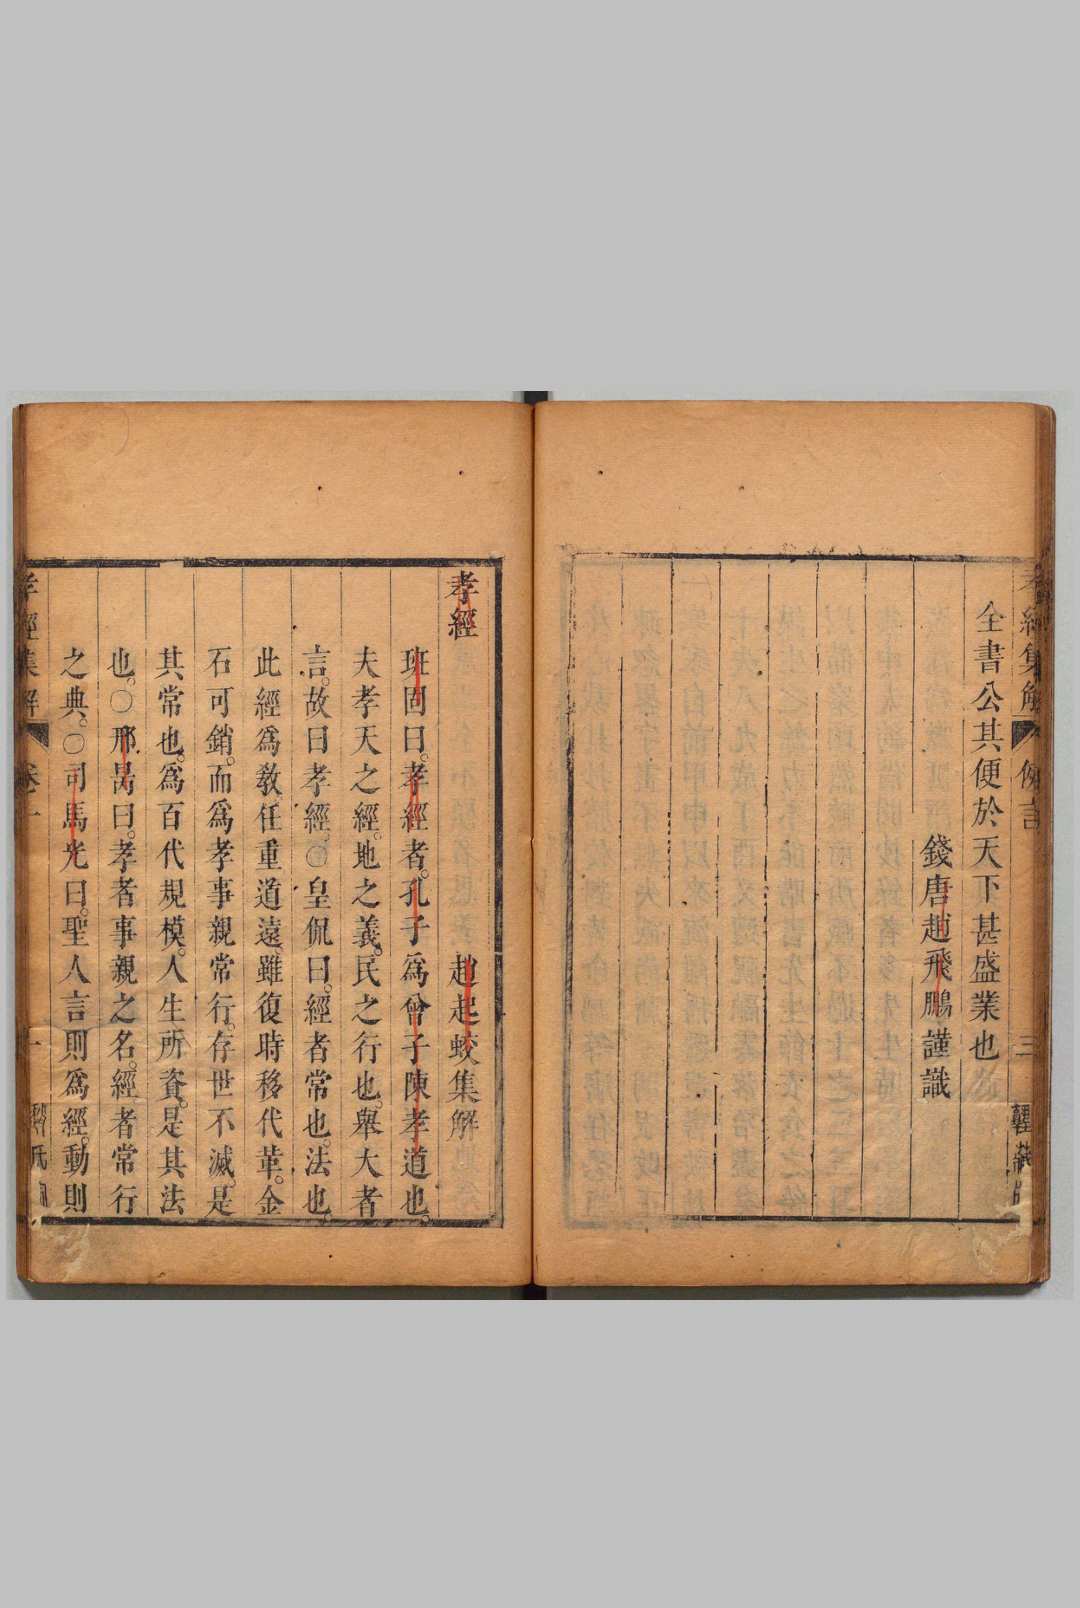 孝經集解 例言 三
全書公其便於天下甚盛業也
錢唐趙飛鵬謹識
孝經 趙起蛟集解
班固曰。孝經者。孔子爲曾子陳孝道也。
夫孝天之經。地之義。民之行也。舉大者
言。故曰孝經。〇皇侃曰。經者常也。法也。
此經爲敎任重道遠。雖復時移代革。金
石可銷。而爲孝事親常行。存世不滅。是
其常也。爲百代規模。人生所資。是其法
也。〇邢昺曰。孝者事親之名。經者常行
之典。〇司馬光曰。聖人言則爲經。動則
孝經集解 卷一 一